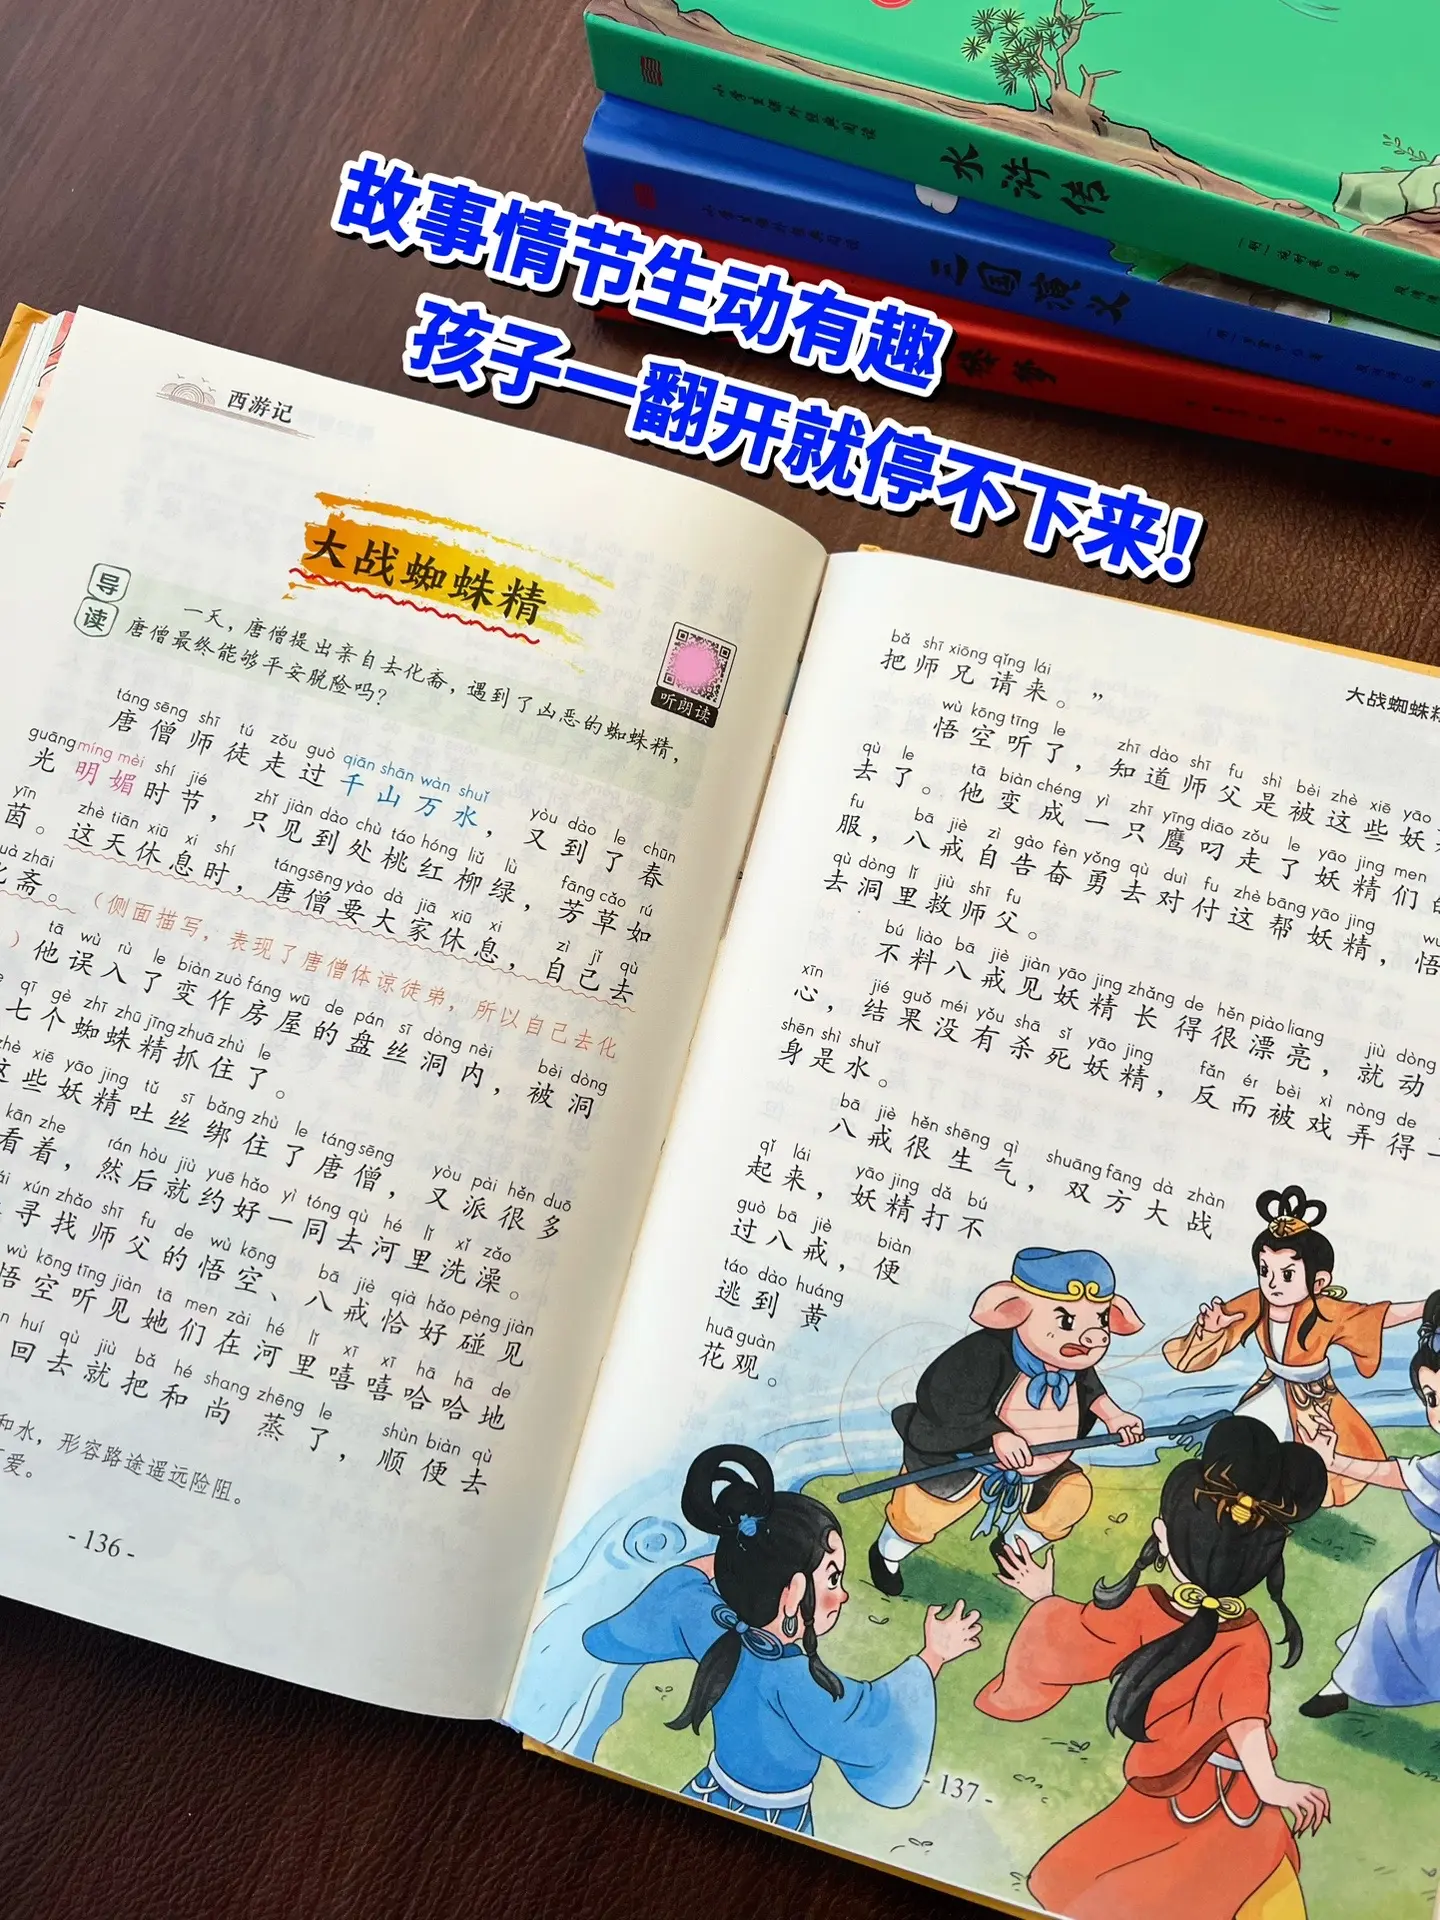 水浒传
三国演义
故事情节生动有趣
孩子一翻开就停不下来！
西游记
大战蜘蛛精
导读
一天，唐僧提出亲自去化斋，遇到了凶恶的蜘蛛精，
唐僧最终能够平安脱险吗？
听朗读
táng sēng shī tú zǒu guò qiān shān wàn shuǐ yòu dào le chūn
唐僧师徒走过千山万水，又到了春
guāng míng mèi shí jié zhǐ jiàn dào chù táo hóng liǔ lǜ fāng cǎo rú
光明媚时节，只见到处桃红柳绿，芳草如
yīn zhè tiān xiū xi shí táng sēng yào dà jiā xiū xi zì jǐ qù
茵。这天休息时，唐僧要大家休息，自己去
zhāi
斋。（侧面描写，表现了唐僧体谅徒弟，所以自己去化
）
tā wù rù le biàn zuò fáng wū de pán sī dòng nèi bèi dòng
他误入了变作房屋的盘丝洞内，被洞
qī gè zhī zhū jīng zhuā zhù le
七个蜘蛛精抓住了。
zhè xiē yāo jing tǔ sī bǎng zhù le táng sēng yòu pài hěn duō
这些妖精吐丝绑住了唐僧，又派很多
kān zhe rán hòu jiù yuē hǎo yì tóng qù hé lǐ xǐ zǎo
看着，然后就约好一同去河里洗澡。
xún zhǎo shī fu de wù kōng bā jiè qià hǎo pèng jiàn
寻找师父的悟空、八戒恰好碰见
wù kōng tīng jiàn tā men zài hé lǐ xī xī hā hā de
悟空听见她们在河里嘻嘻哈哈地
huí qù jiù bǎ hé shang zhēng le shùn biàn qù
回去就把和尚蒸了，顺便去
和水，形容路途遥远险阻。
爱。
- 136 -
大战蜘蛛精
bǎ shī xiōng qǐng lái
把师兄请来。”
wù kōng tīng le zhī dào shī fu shì bèi zhè xiē yāo
悟空听了，知道师父是被这些妖
qù le tā biàn chéng yì zhī yīng diāo zǒu le yāo jing men
去了。他变成一只鹰叼走了妖精们的
fu bā jiè zì gào fèn yǒng qù duì fu zhè bāng yāo jing wù
服，八戒自告奋勇去对付这帮妖精，悟
qù dòng lǐ jiù shī fu
去洞里救师父。
bú liào bā jiè jiàn yāo jing zhǎng de hěn piào liang jiù dòng
不料八戒见妖精长得很漂亮，就动
xīn jié guǒ méi yǒu shā sǐ yāo jing fǎn ér bèi xì nòng de
心，结果没有杀死妖精，反而被戏弄得
shēn shì shuǐ
身是水。
bā jiè hěn shēng qì shuāng fāng dà zhàn
八戒很生气，双方大战
qǐ lái yāo jing dǎ bú
起来，妖精打不
guò bā jiè biàn
过八戒，便
táo dào huáng
逃到黄
huā guàn
花观。
- 137 -